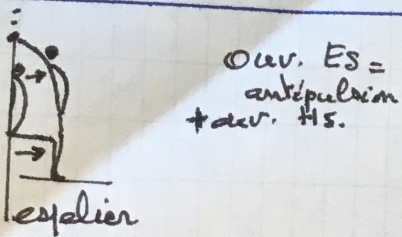 Ouv. ES =
antépulsion
+ ouv. HS.
espalier